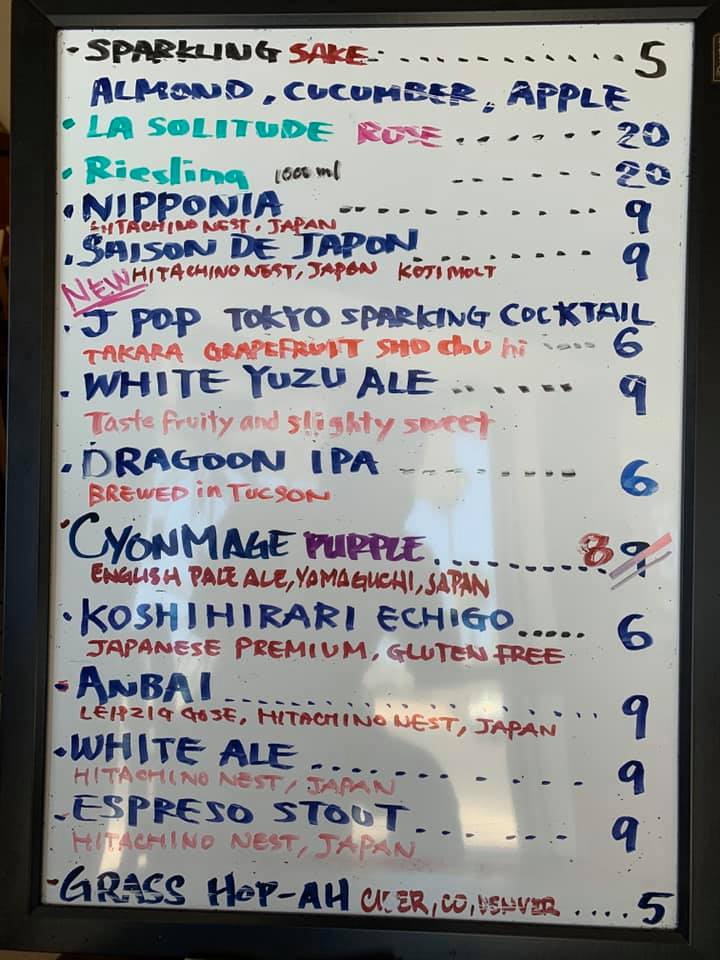 • SPARKLING SAKE ........... 5
ALMOND, CUCUMBER, APPLE
• LA SOLITUDE ROSE ...... 20
• Riesling 1000 ml ...... 20
• NIPPONIA .......... 9
HITACHINO NEST, JAPAN
• SAISON DE JAPON ........ 9
HITACHINO NEST, JAPAN KOJI MOLT
NEW
• J POP TOKYO SPARKING COCKTAIL
TAKARA GRAPEFRUIT SHO chu hi .... 6
• WHITE YUZU ALE ...... 9
Taste fruity and slighty sweet
• DRAGOON IPA ......... 6
BREWED in TUCSON
• CYONMAGE PURPLE .......... 8 9
ENGLISH PALE ALE, YAMAGUCHI, JAPAN
• KOSHIHIRARI ECHIGO ..... 6
JAPANESE PREMIUM, GLUTEN FREE
• ANBAI .............. 9
LEIPZIG GOSE, HITACHINO NEST, JAPAN
• WHITE ALE .......... 9
HITACHINO NEST, JAPAN
• ESPRESO STOUT ...... 9
HITACHINO NEST, JAPAN
• GRASS HOP-AH CO, DENVER .... 5